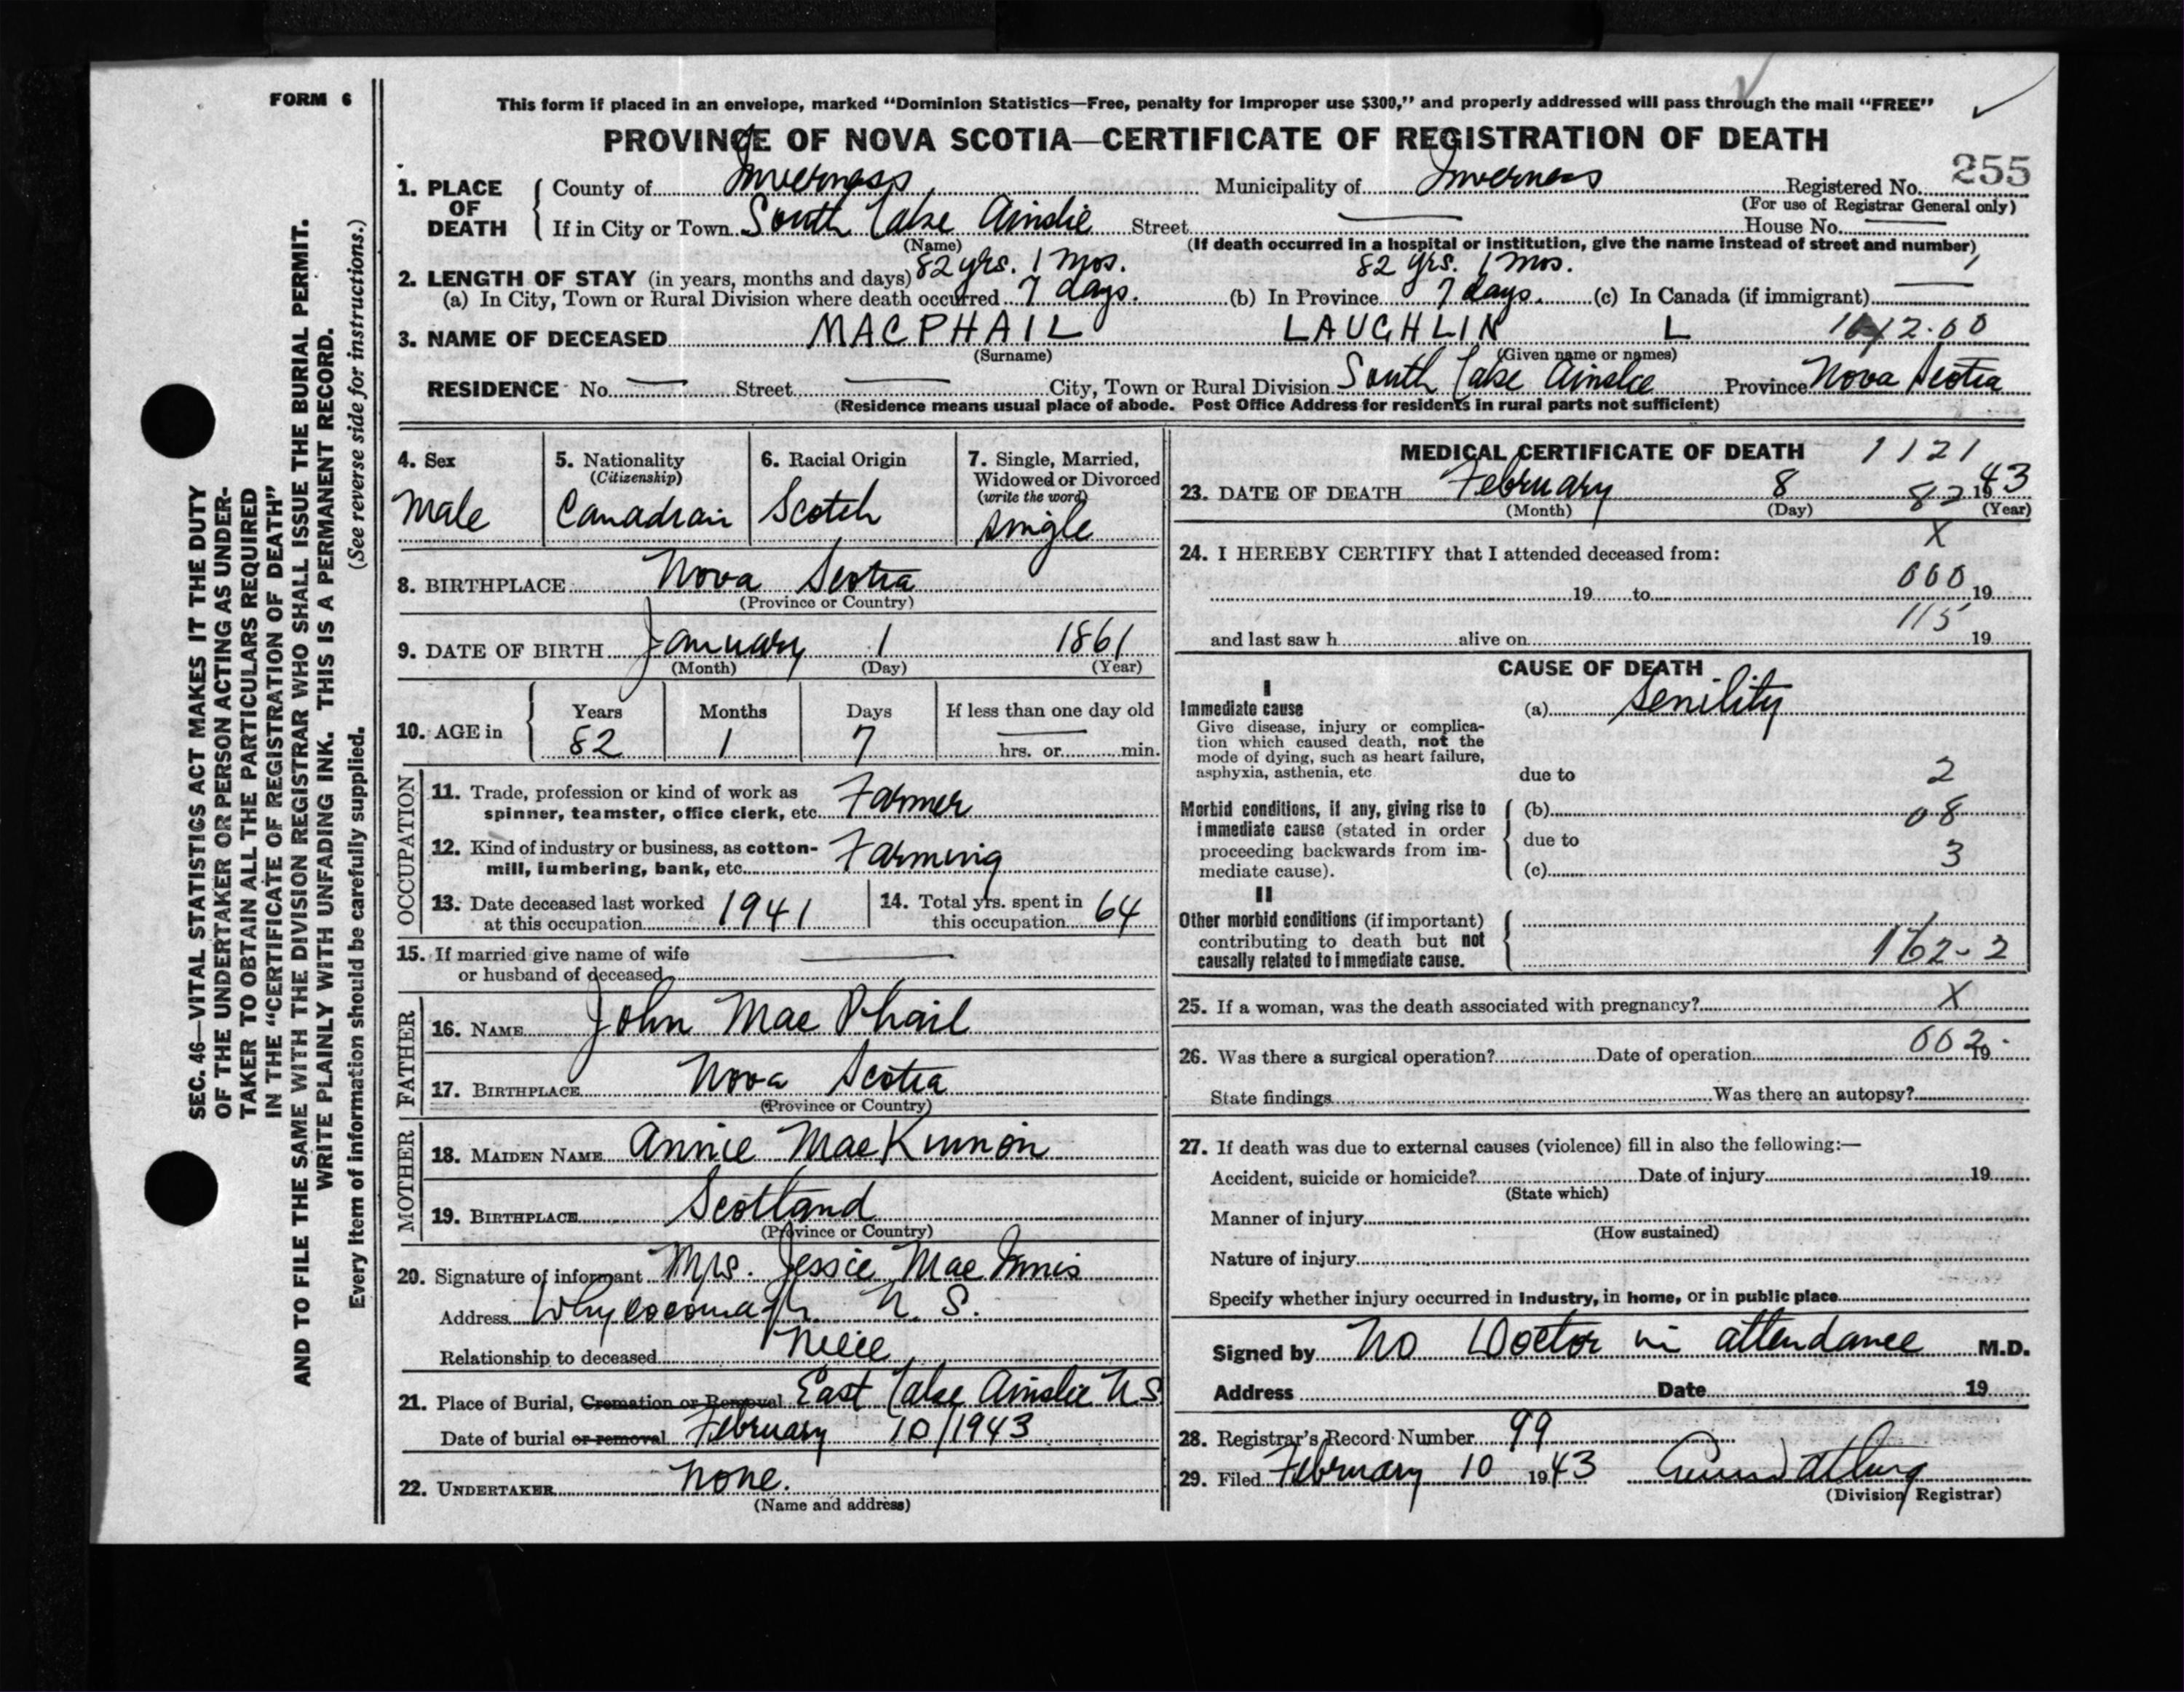 FORM 6
This form if placed in an envelope, marked “Dominion Statistics—Free, penalty for improper use $300,” and properly addressed will pass through the mail “FREE”
PROVINCE OF NOVA SCOTIA—CERTIFICATE OF REGISTRATION OF DEATH
255
1. PLACE OF DEATH County of Inverness Municipality of Inverness Registered No.
(For use of Registrar General only)
If in City or Town South Lake Ainslie Street House No.
(Name) (If death occurred in a hospital or institution, give the name instead of street and number)
2. LENGTH OF STAY (in years, months and days) 82 yrs. 1 mos. 82 yrs. 1 mos.
(a) In City, Town or Rural Division where death occurred 7 days. (b) In Province 7 days. (c) In Canada (if immigrant)
3. NAME OF DECEASED MACPHAIL LAUGHLIN L
(Surname) (Given name or names)
RESIDENCE No. Street City, Town or Rural Division South Lake Ainslie Province Nova Scotia
(Residence means usual place of abode. Post Office Address for residents in rural parts not sufficient)
4. Sex
Male
5. Nationality
(Citizenship)
Canadian
6. Racial Origin
Scotch
7. Single, Married,
Widowed or Divorced
(write the word)
single
8. BIRTHPLACE Nova Scotia
(Province or Country)
9. DATE OF BIRTH January 1 1861
(Month) (Day) (Year)
10. AGE in Years Months Days If less than one day old
82 1 7 hrs. or min.
OCCUPATION
11. Trade, profession or kind of work as
spinner, teamster, office clerk, etc. Farmer
12. Kind of industry or business, as cotton-
mill, lumbering, bank, etc. Farming
13. Date deceased last worked
at this occupation 1941
14. Total yrs. spent in
this occupation 64
15. If married give name of wife
or husband of deceased
FATHER
16. NAME John MacPhail
17. BIRTHPLACE Nova Scotia
(Province or Country)
MOTHER
18. MAIDEN NAME Annie MacKinnon
19. BIRTHPLACE Scotland
(Province or Country)
20. Signature of informant Mrs. Jessie MacInnis
Address Whycocomagh N. S.
Relationship to deceased Neice
21. Place of Burial, Cremation or Removal East Lake Ainslie N S
Date of burial or removal February 10/1943
22. UNDERTAKER None.
(Name and address)
MEDICAL CERTIFICATE OF DEATH 1121
23. DATE OF DEATH February 8 1943
82
(Month) (Day) (Year)
X
24. I HEREBY CERTIFY that I attended deceased from:
000
19 to 19
115
and last saw h alive on 19
CAUSE OF DEATH
I
Immediate cause
Give disease, injury or complica-
tion which caused death, not the
mode of dying, such as heart failure,
asphyxia, asthenia, etc.
(a) Senility
due to
2
Morbid conditions, if any, giving rise to
immediate cause (stated in order
proceeding backwards from im-
mediate cause).
(b) 08
due to
3
(c)
II
Other morbid conditions (if important)
contributing to death but not
causally related to immediate cause.
162-2
25. If a woman, was the death associated with pregnancy? X
26. Was there a surgical operation? Date of operation 19
002
State findings Was there an autopsy?
27. If death was due to external causes (violence) fill in also the following:—
Accident, suicide or homicide? Date of injury 19
(State which)
Manner of injury
(How sustained)
Nature of injury
Specify whether injury occurred in industry, in home, or in public place
Signed by No Doctor in attendance M.D.
Address Date 19
28. Registrar's Record Number 99
29. Filed February 10 1943
(Division Registrar)
SEC. 46—VITAL STATISTICS ACT MAKES IT THE DUTY
OF THE UNDERTAKER OR PERSON ACTING AS UNDER-
TAKER TO OBTAIN ALL THE PARTICULARS REQUIRED
IN THE “CERTIFICATE OF REGISTRATION OF DEATH”
AND TO FILE THE SAME WITH THE DIVISION REGISTRAR WHO SHALL ISSUE THE BURIAL PERMIT.
WRITE PLAINLY WITH UNFADING INK. THIS IS A PERMANENT RECORD.
Every item of information should be carefully supplied. (See reverse side for instructions.)